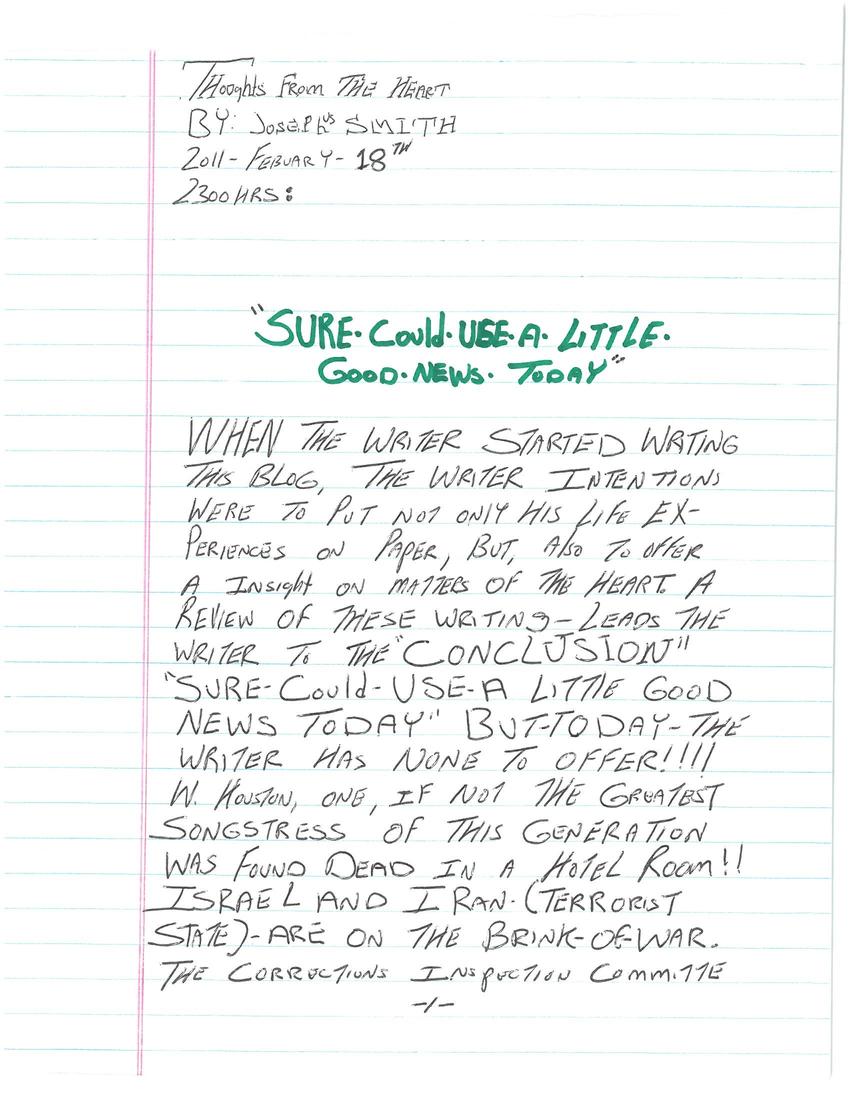 Thoughts From The Heart
BY: Josephus SMITH
2011- FEBUARY- 18TH
2300 HRS:
"SURE. Could. USE. A. LITTLE.
GOOD. NEWS. TODAY"
WHEN THE WRITER STARTED WRTING
THIS BLOG, THE WRITER INTENTIONS
WERE TO PUT NOT ONLY HIS LIFE EX-
PERIENCES ON PAPER, BUT, Also TO offER
A INSight ON MATTERS OF THE HEART. A
REVIEW OF THESE WRITING- LEADS THE
WRITER TO THE "CONCLUSION"
"SURE-Could-USE-A LITTlE GOOD
NEWS TODAY" BUT-TODAY-THE
WRITER HAS NONE TO OFFER!!!!
W. HOUSTON, ONE, IF NOT THE GREATEST
SONGSTRESS OF THIS GENERATION
WAS FOUND DEAD IN A HOTEL ROOM!!
ISRAEL AND IRAN. (TERRORIST
STATE)-ARE ON THE BRINK-OF-WAR.
THE CORRECTIONS INSPECTION COMMITTE
-1-